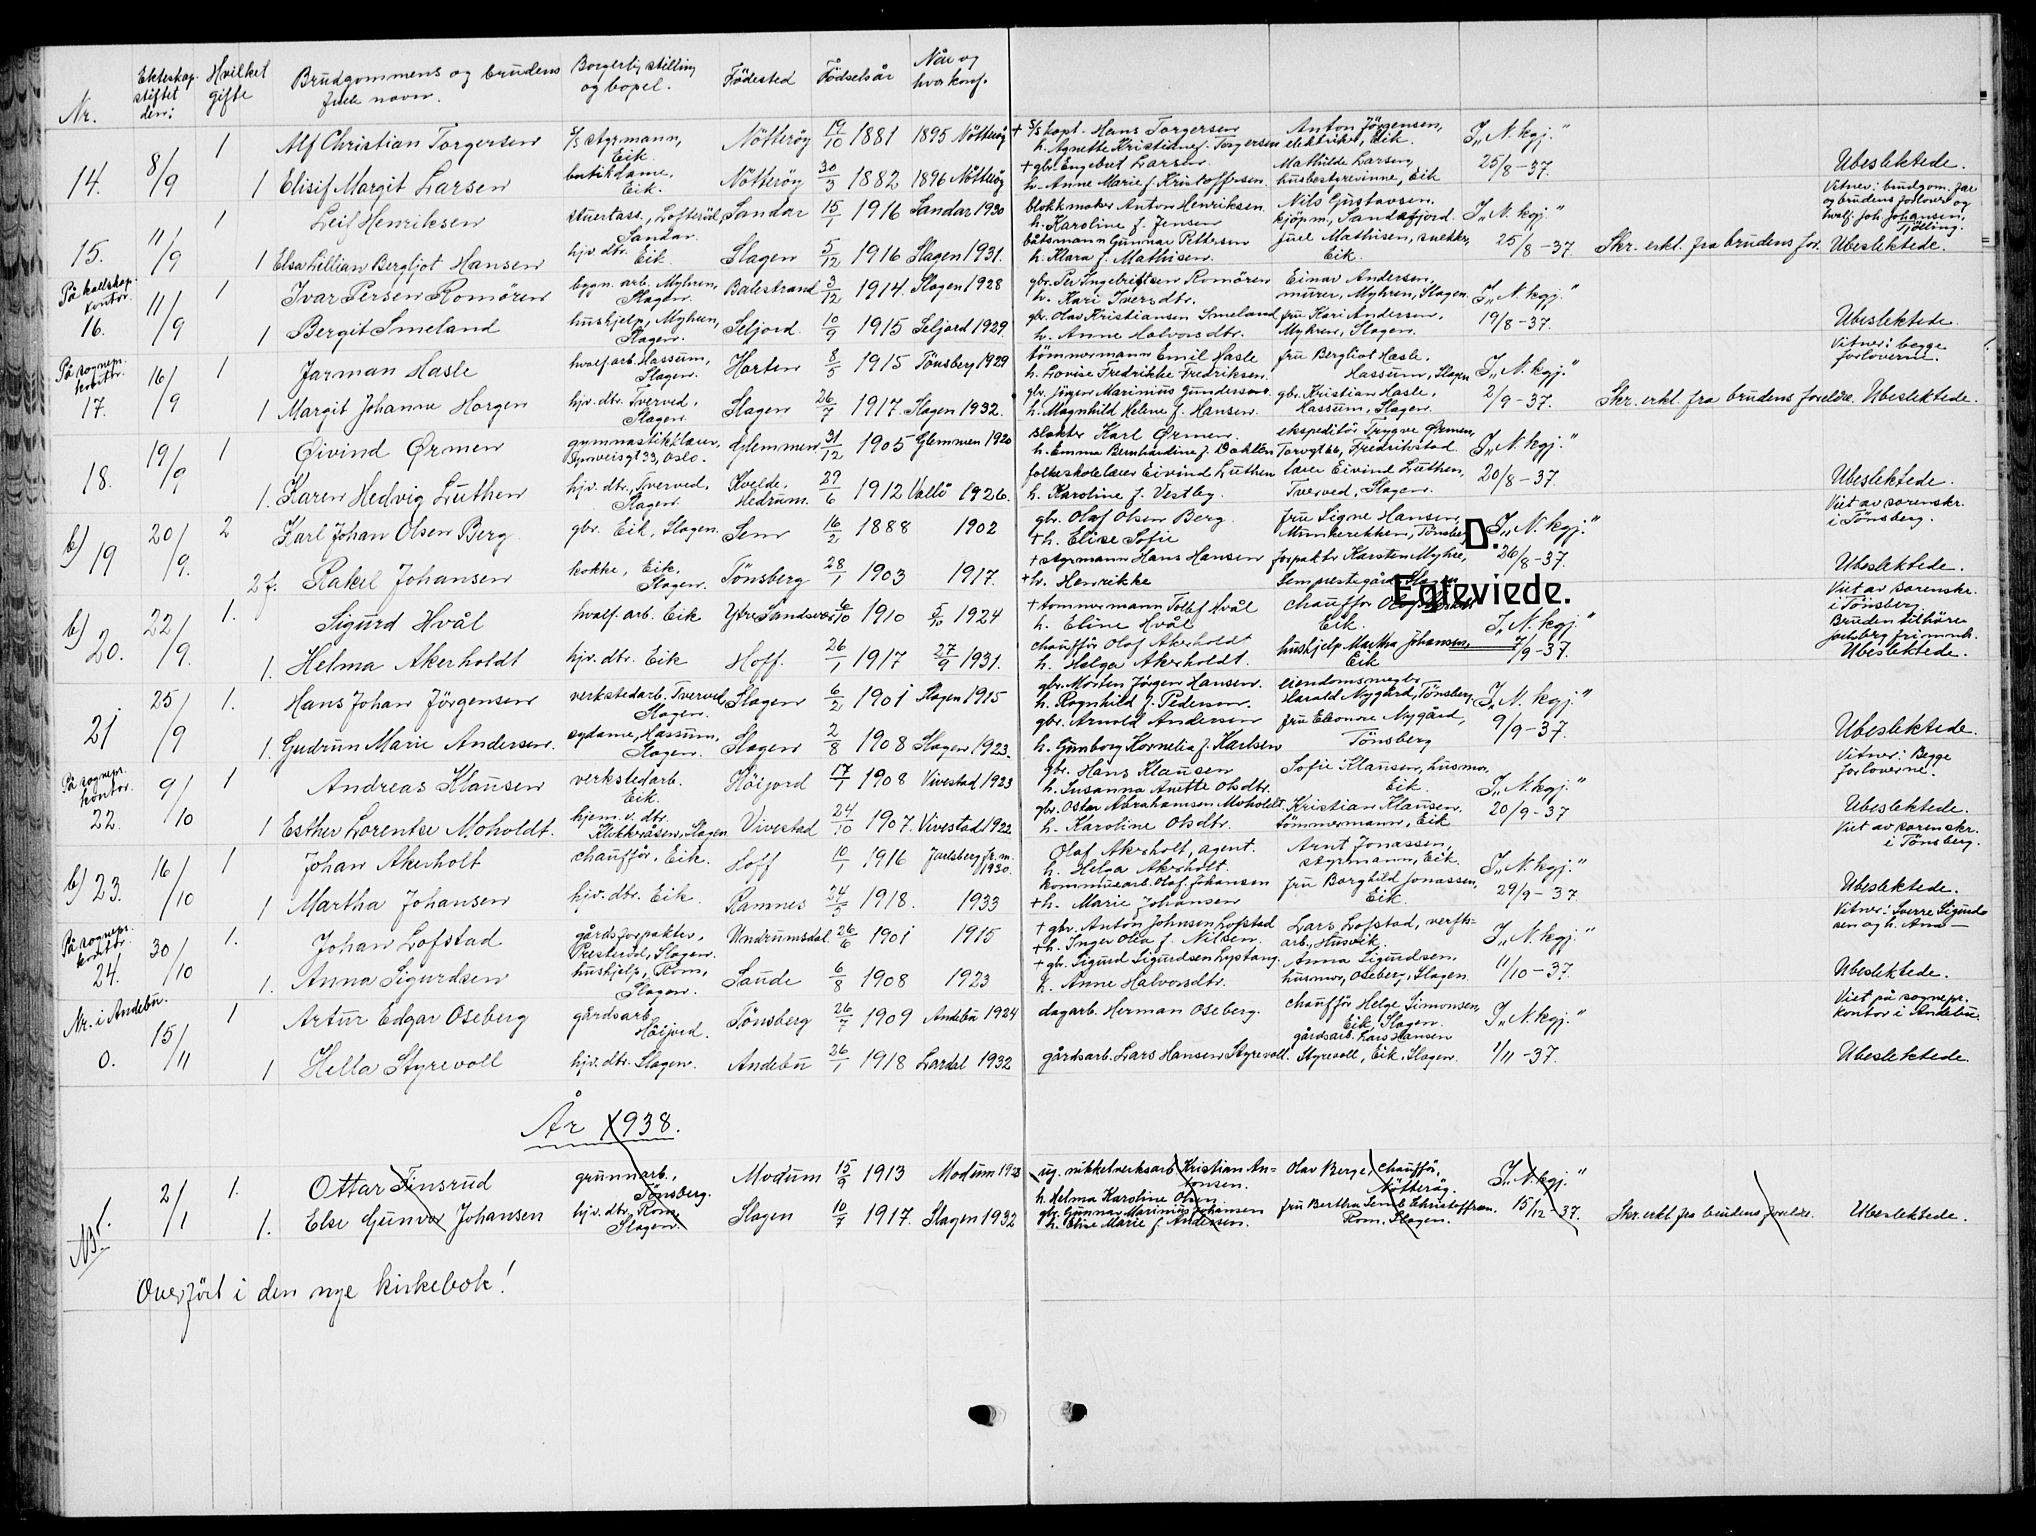 Nr.
Ekteskap stiftet den:
Hvilket gifte
Brudgommens og brudens fulle navn.
Borgerlig stilling og bopel.
Fødested
Fødselsår
Når og hvor konf.
14. 8/9
1 Alf Christian Torgersen s/s styrmann, Eik. Nötteröy 19/10 1881 1895 Nötteröy + s/s kapt. Hans Torgersen h. Agnette Kristine f. Torgersen Anton Jörgensen, elektriker, Eik. I „N. kgj."
1 Elisif Margit Larsen butikdame, Eik. Nötteröy 30/3 1882 1896 Nötteröy + gbr. Engebret Larsen h. Anne Marie f. Kristoffersen. Mathilde Larsen, husbestyrerinne, Eik 25/8-37. Ubeslektede.
15. 11/9
1 Leif Henriksen stuertass., Lofteröd, Sandar. Sandar 15/1 1916 Sandar 1930 blokkmaker Anton Henriksen h. Karoline f. Jensen Nils Gustavsen, kjöpm., Sandefjord. I „N. kgj." Vitner: brudgom. far og brudens forlover og hvalf. Joh. Johansen, Tjölling.
1 Elsa Lillian Bergljot Hansen hjv. dtr. Eik. Slagen 5/12 1916 Slagen 1931. båtsmann Gunnar Pettersen h. Klara f. Mathisen. Juel Mathisen, snekker, Eik. 25/8-37. Skr. erkl. fra brudens for. Ubeslektede.
På kallskap. kontor. 16. 11/9
1 Ivar Persen Romören bygn. arb. Myhren, Slagen. Balestrand 3/12 1914. Slagen 1928 gbr. Per Ingebrigtsen Romören h. Kari Iversdtr. Einar Andersen, murer, Myhren, Slagen. I „N. kgj."
1 Bergit Smeland hushjelp, Myhren, Slagen. Seljord. 10/9 1915 Seljord 1929. gbr. Olav Kristiansen Smeland h. Anne Halvorsdtr. fru Kari Andersen, Myhren, Slagen. 19/8-37. Ubeslektede.
På sognepr. kontor. 17. 16/9
1 Jarman Hasle hvalf. arb. Hassum, Slagen. Horten 8/5 1915 Tönsberg 1929 tömmermann Emil Hasle h. Lovise Fredrikke Fredriksen. fru Bergliot Hasle, Hassum, Slagen I „N. kgj." Vitner: begge forloverne.
1 Margit Johanne Horgen hjv. dtr. Tverved, Slagen. Slagen 26/7 1917. Slagen 1932. gbr. Jörgen Marinius Gundersen h. Magnhild Helene f. Hansen. gbr. Kristian Hasle, Hassum, Slagen. 2/9-37. Skr. erkl. fra brudens foreldre. Ubeslektede.
18. 19/9
1 Øivind Ørmen gymnastikklærer, Glemmen, 31/12 1905 Glemmen 1920 slakter Karl Ørmen. h. Emma Bernhardine f. Dahlen ekspeditör Trygve Ørmen, Torvgt 66, Fredrikstad. I „N. kgj."
1. Karen Hedvig Luthen hjv. dtr., Tverved, Slagen. Kvelde, Hedrum. 27/6 1912 Vallö 1926. folkeskolelærer Eivind Luthen h. Karoline f. Vestby. lærer Eivind Luthen, Tverved, Slagen. 20/8-37. Ubeslektede.
b) 19 20/9.
2 Karl Johan Olsen Berg. gbr. Eik, Slagen. Sem 16/2 1888 1902 gbr. Olaf Olsen Berg. + h. Elise Sofie fru Signe Hansen, Munkerekken, Tönsberg I „N. kgj." Viet av sorenskr. i Tönsberg.
2 f. Rakel Johansen kokke, Eik, Slagen. Tönsberg 28/1 1903 1917. + styrmann Hans Hansen + h. Henrikke forpakter Karsten Myhre, Semprestegård, Slagen 26/8-37. Ubeslektede.
D. Egteviede.
b) 20. 22/9.
1. Sigurd Hvål hvalf. arb. Eik Ytre Sandsver 6/10 1910 5/10 1924 + tömmermann Tollef Hvål h. Eline Hvål chauffør Eik. I „N. kgj." Viet av sorenskr. i Tönsberg Bruden tilhörer Jarlsberg frimenh.
1. Helma Akerholdt hjv. dtr. Eik Hoff. 26/1 1917 27/9 1931. chauffør Olaf Akerholdt h. Helga Akerholdt. hushjelp Martha Johansen, Eik 7/9-37. Ubeslektede.
21 25/9
1. Hans Johan Jörgensen verkstedarb. Tverved Slagen. Slagen 6/2 1901 Slagen 1915 gbr. Morten Jörgen Hansen. h. Ragnhild f. Pedersen. eiendomsmegler Harald Nygård, Tönsberg, I „N. kgj."
1. Gudrun Marie Andersen. sydame, Hassum, Slagen. Slagen 2/8 1908 Slagen 1923. gbr. Arnold Andersen h. Gunborg Kornelia f. Karlsen fru Eleonore Nygård, Tönsberg 9/9-37. Ubeslektede.
På sognepr. kontor. 22. 9/10
1 Andreas Klausen verkstedarb. Eik. Höijord 17/1 1908 Vivestad 1923 gbr. Hans Klausen h. Susanna Anette Olsdtr. Sofie Klausen, husmor, Eik. I „N. kgj." Vitner: Begge forloverne.
1 Esther Lorentse Moholdt. hjem. v. dtr. Klibberåsen, Slagen Vivestad 24/10 1907. Vivestad 1922 gbr. Oskar Abrahamsen Moholdt. h. Karoline Olsdtr. Kristian Klausen. tömmermann, Eik 20/9-37 Ubeslektede.
b) 23. 16/10
1 Johan Akerholt chauffør, Eik. Hoff 10/1 1916 Jarlsberg fr. m. 1930. Olaf Akerholt, agent. h. Helga Akerholt. Arnt Jonassen, styrmann, Eik. I „N. kgj." Viet av sorenskr. i Tönsberg.
1 Martha Johansen hjv. dtr. Eik. Ramnes 24/5 1918. 1933 kommunearb. Olaf Johansen + h. Marie Johansen fru Borghild Jonassen, Eik. 29/9-37. Ubeslektede.
På sognepr. kontor. 24. 30/10
1. Johan Lofstad gårdsforpakter, Presteröd, Slagen. Undrumsdal 26/6 1901 1915 + gbr. Anton Johnsen Lofstad + h. Inger Olea f. Nilsen. Lars Lofstad, verfts-arb., Husvik. I „N. kgj." Vitner: Sverre Sigurdsen og h. Ama
1. Anna Sigurdsen hushjelp, Rom, Slagen. Saude 6/8 1908 1923 + gbr. Sigurd Sigurdsen Lystang. h. Anne Halvorsdtr. Anna Sigurdsen, husmor, Oseberg, Slagen. 11/10-37. Ubeslektede.
Nr. i Andebu. 0. 15/11
1 Artur Edgar Oseberg gårdsarb. Höijord. Tönsberg 26/7 1909 Andebu 1924 dagarb. Herman Oseberg. chauffør Helge Simonsen, Eik, Slagen. I „N. kgj." Viet på sognepr. kontor i Andebu.
1 Hella Styrevoll hjv. dtr. Slagen. Andebu 26/1 1918 Lardal 1932 gårdsarb. Lars Hansen Styrevoll. gårdsarb. Lars Hansen Styrevoll, Eik, Slagen. 1/11-37. Ubeslektede.
År 1938.
1. 2/1
1. Ottar Finsrud grunnarb., Tönsberg. Modum 15/9 1913 Modum 1928 ug. nikkelverksarb. Kristian Antonsen. Olav Berge, chauffør, Nötteröy. I „N. kgj."
1. Else Gunvor Johansen hjv. dtr. Rom, Slagen. Slagen 10/7 1917. Slagen 1932 h. Helma Karoline Olsen. gbr. Gunnar Marinius Johansen h. Elise Marie f. Andersen. fru Bertha Kristoffersen. Rom, Slagen. 15/12-37. Skr. erkl. fra brudens foreldre. Ubeslektede.
NB!
Overfört i den nye kirkebok!